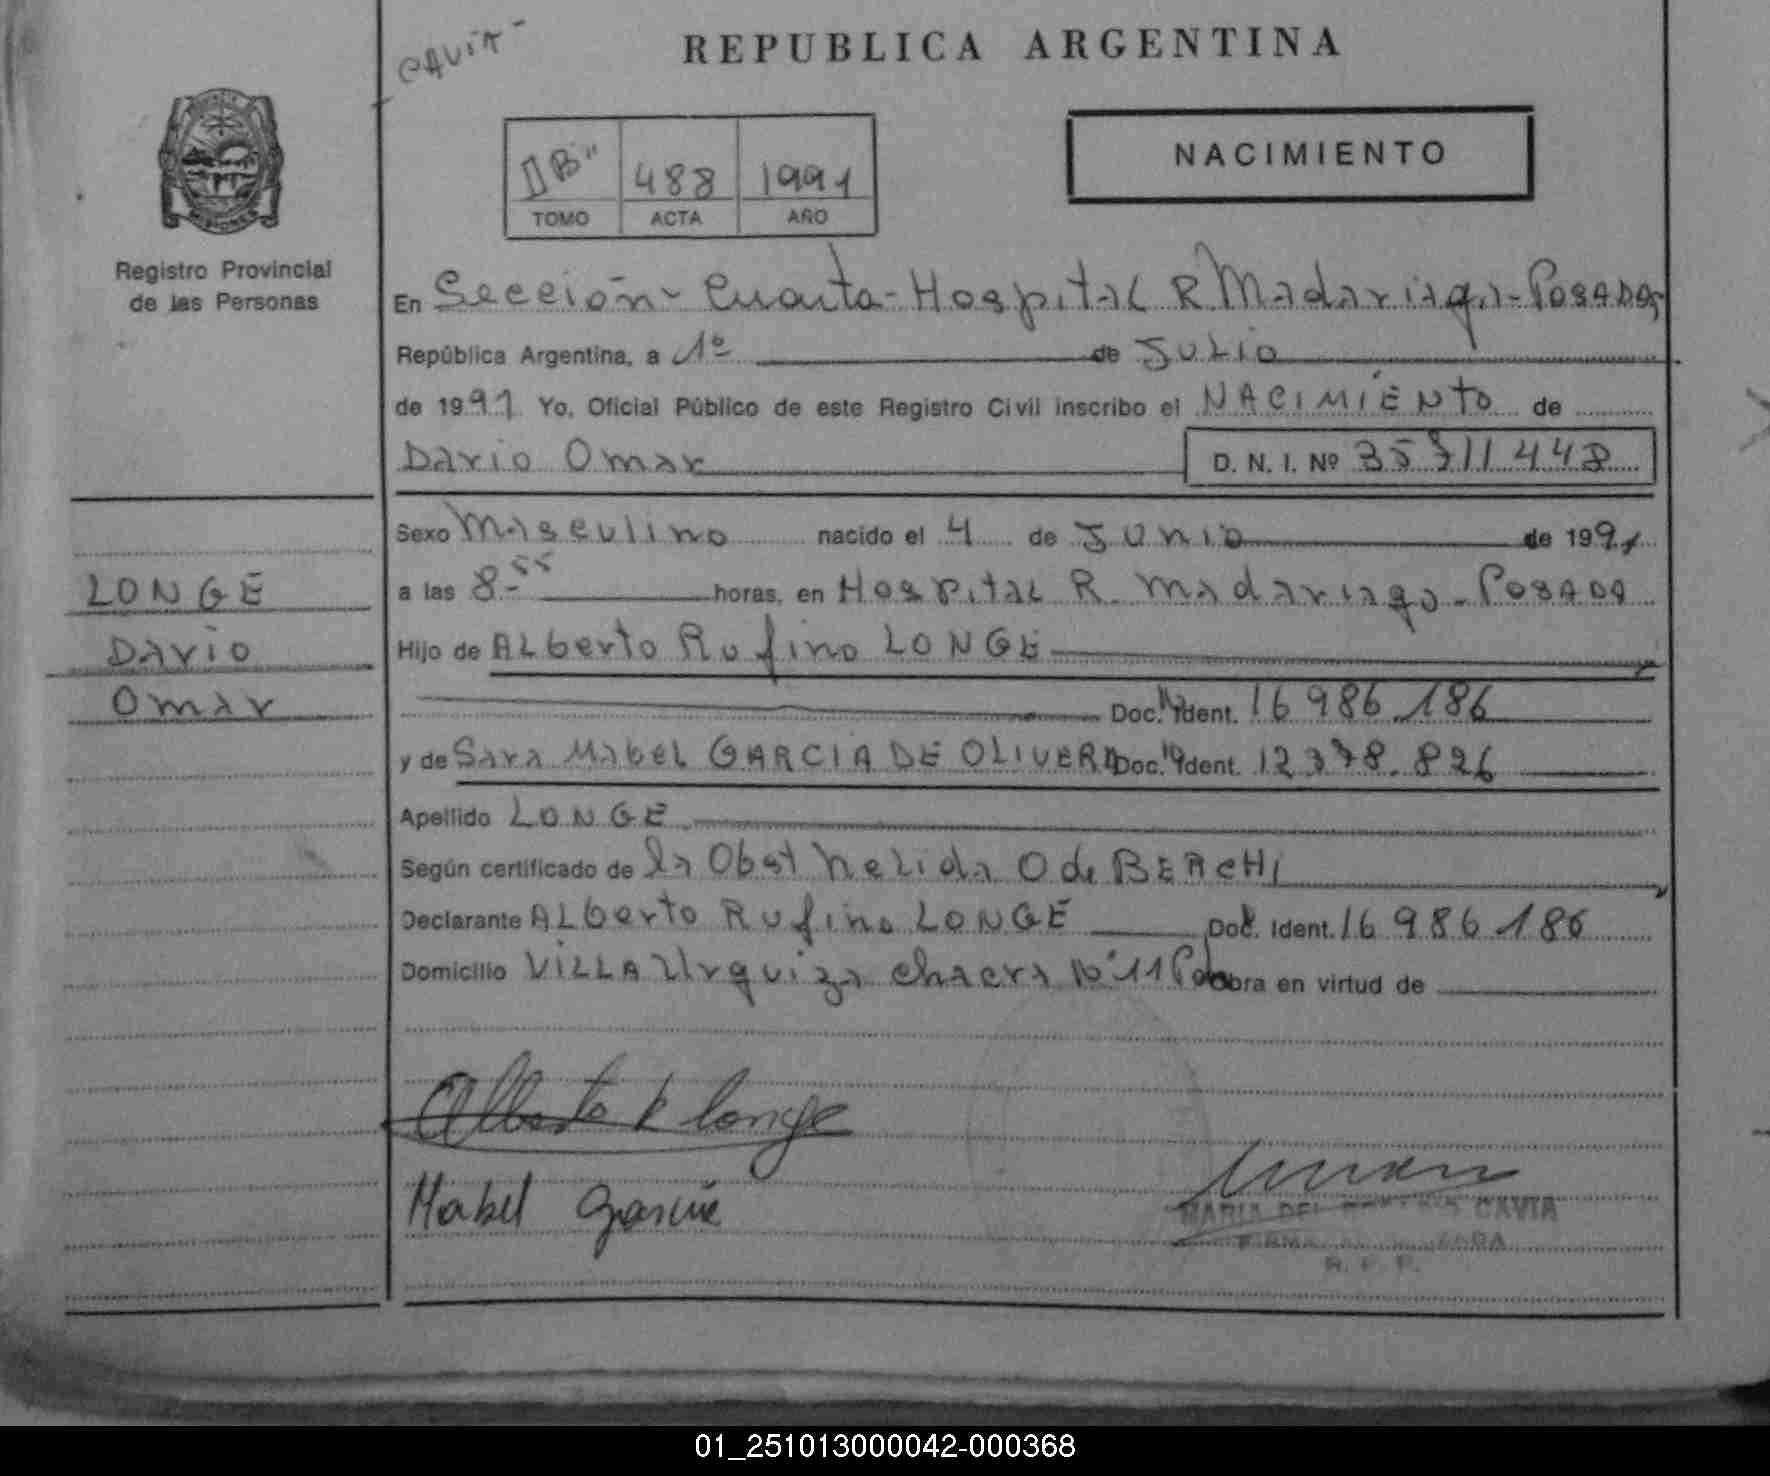 CAVIA-
REPUBLICA ARGENTINA
NACIMIENTO
II "B" 488 1991
TOMO ACTA AÑO
MISIONES
Registro Provincial
de las Personas
En Sección - Cuarta - Hospital R Madariaga - POSADAS
República Argentina, a 1º de JULIO
de 1991 Yo, Oficial Público de este Registro Civil inscribo el NACIMIENTO de
Dario Omar D. N. I. Nº 35711448
Sexo Masculino nacido el 4 de JUNIO de 1991
a las 8-55 horas, en Hospital R. Madariaga - POSADA
LONGE
Hijo de Alberto Rufino LONGE
Dario
Omar
Doc. Ident. 16 986 186
y de Sara Mabel GARCIA DE OLIVERA Doc. Ident. 12378.826
Apellido LONGE
Según certificado de la Obst Nelida O de BERCHI
Declarante Alberto Rufino LONGE Doc. Ident. 16 986 186
Domicilio VILLA Urquiza chacra Nº 11 Pdas obra en virtud de
Alberto R Longe
Mabel Garcia
MARIA DEL CAVIA
R. P. P.
01_251013000042-000368